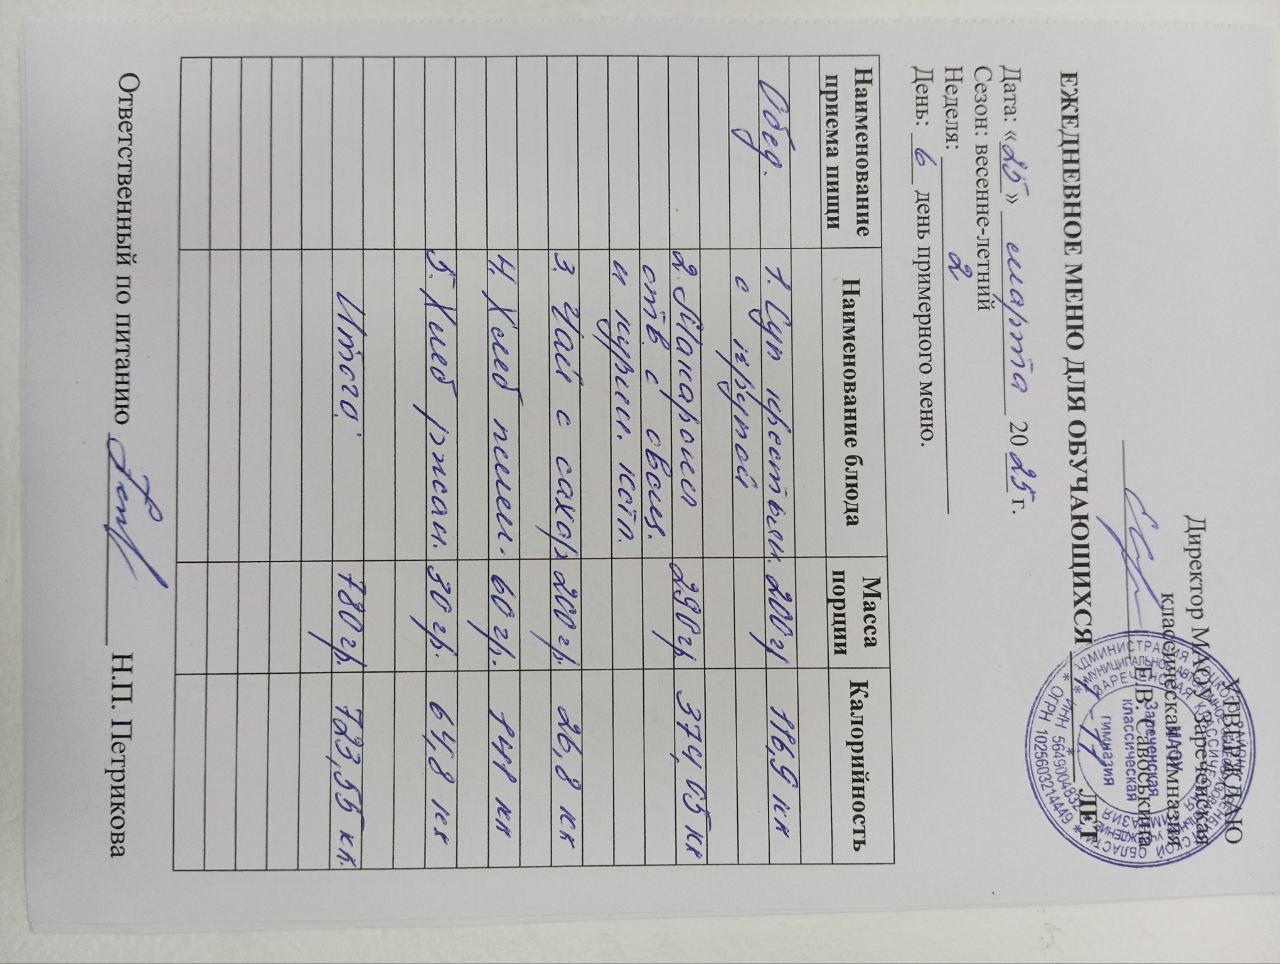 УТВЕРЖДАЮ
Директор МАОУ Зареченская
классическая гимназия
Е.В. Савоськина
ЕЖЕДНЕВНОЕ МЕНЮ ДЛЯ ОБУЧАЮЩИХСЯ 7-11 ЛЕТ
Дата: «25» марта 2025 г.
Сезон: весенне-летний
Неделя: 2
День: 6 день примерного меню.
Наименование приема пищи Наименование блюда Масса порции Калорийность
Обед. 1. Суп крестьян. 200 гр 116,9 кк
с крупой
2. Макароны 290 гр 374,05 кк
отв. с овощ.
и курин. котл.
3. Чай с сахар 200 гр. 26,8 кк
4. Хлеб пшен. 60 гр. 141 кк
5. Хлеб ржан. 30 гр. 64,8 кк
Итого: 780 гр. 723,55 кк.
Ответственный по питанию Н.П. Петрикова
МАОУ
Зареченская
классическая
гимназия
ИНН 5649004832
* ОГРН 1025603214449 *